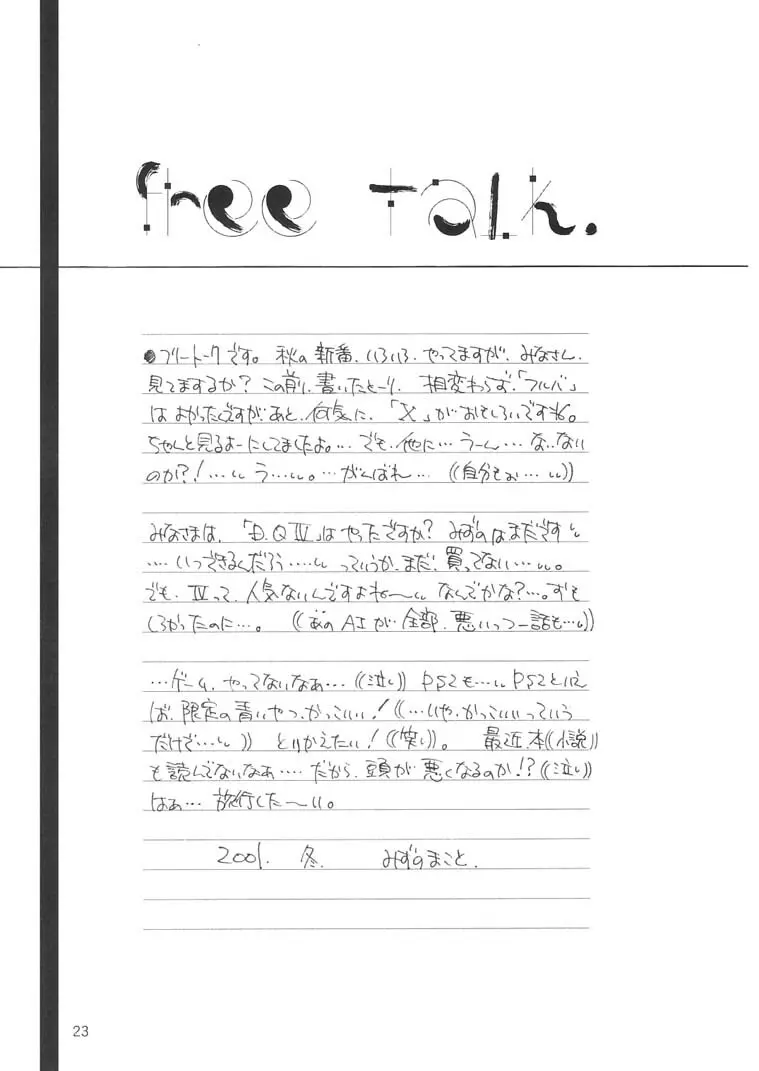 free Talk.
●フリートークです。秋の新番、いろいろ、やってますが、みなさん、
見てますか?この前に、書いたとーり、相変わらず、「フルバ」
はよかったんですが、あと、何気に、「X」がおもしろいですね。
ちゃんと見るよーにしてましたよ。… でも、他に… うーん… な、ない
のか?!…いう…い。… がんばれ… ((自分もぉ… い))
みなさまは、「D.Q Ⅳ」はやったですか?みずのはまだですい
…いつできるんだろう……い っていうか、まだ、買ってない…い。
でも、Ⅳって、人気ないんですよね〜い なんでかな?…。おも
しろかったのに…。((あのAIが、全部、悪いっつー話も…い))
…ゲーム、やってないなぁ…((泣い)) PS2も…い PS2といえ
ば、限定の青いやつ、かっこいい!((…いや、かっこいいっていう
だけど…い)) とりかえたい!((笑い))。 最近、本((小説))
も読んでないなぁ…. だから、頭が悪くなるのか!?((泣い))
はぁ… 旅行した〜い。
2001. 冬. みずのまこと.
23